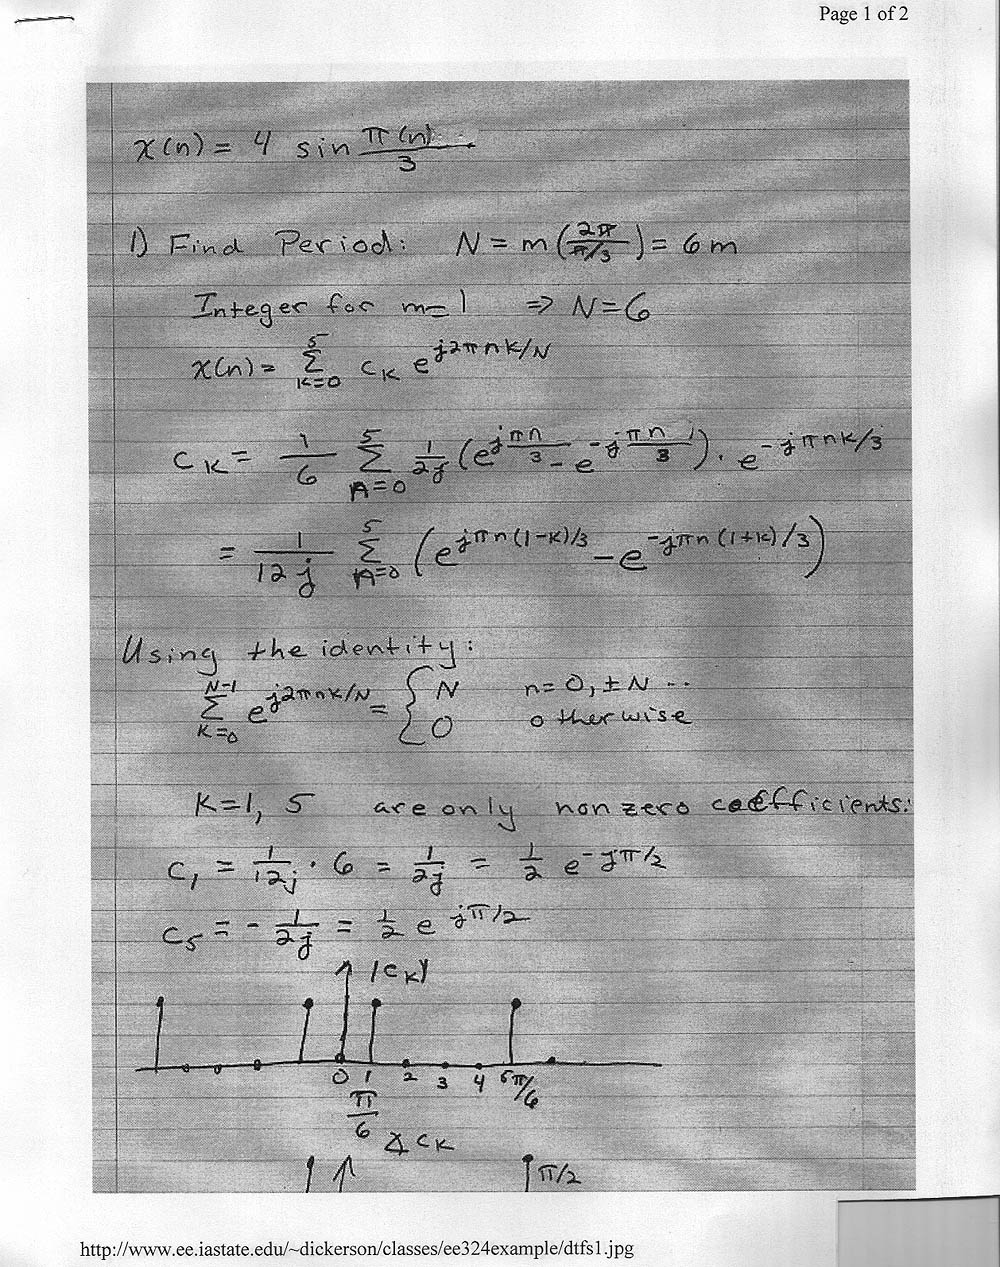 Page 1 of 2
x(n) = 4 sin π(n)/3
1) Find Period: N = m(2π/(π/3)) = 6m
Integer for m=1 ⇒ N=6
x(n) = 5 Σ K=0 c_K e^{j2πnk/N}
c_K = 1/6 5 Σ n=0 1/2j (e^{jπn/3} - e^{-jπn/3}) · e^{-jπnk/3}
= 1/12j 5 Σ n=0 (e^{jπn(1-k)/3} - e^{-jπn(1+k)/3})
Using the identity:
N-1 Σ K=0 e^{j2πnk/N} = { N n=0, ±N ...
0 otherwise
K=1, 5 are only nonzero coefficients:
c_1 = 1/12j · 6 = 1/2j = 1/2 e^{-jπ/2}
c_5 = - 1/2j = 1/2 e^{jπ/2}
|c_K|
0 1 2 3 4 5π/6
π/6
∡ c_K
π/2
http://www.ee.iastate.edu/~dickerson/classes/ee324example/dtfs1.jpg